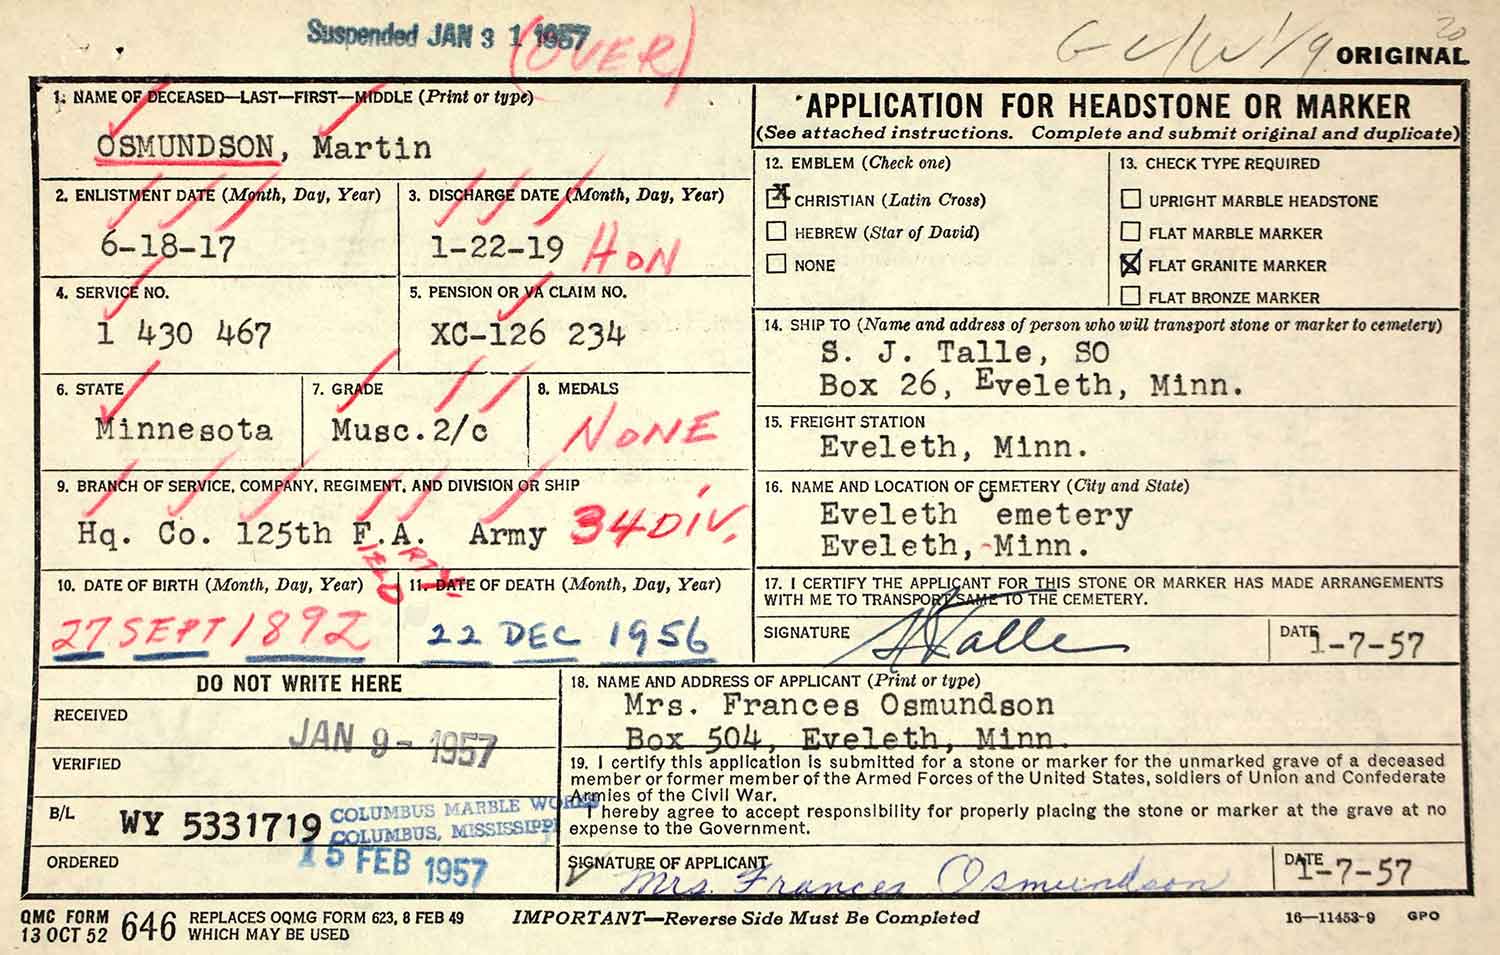 Suspended JAN 31 1957
(OVER)
ORIGINAL
1. NAME OF DECEASED—LAST—FIRST—MIDDLE (Print or type)
OSMUNDSON, Martin
2. ENLISTMENT DATE (Month, Day, Year)
6-18-17
3. DISCHARGE DATE (Month, Day, Year)
1-22-19 HON
4. SERVICE NO.
1 430 467
5. PENSION OR VA CLAIM NO.
XC-126 234
6. STATE
Minnesota
7. GRADE
Musc.2/c
8. MEDALS
NONE
9. BRANCH OF SERVICE, COMPANY, REGIMENT, AND DIVISION OR SHIP
Hq. Co. 125th F.A. Army 34 DIV.
IELD RTY.
10. DATE OF BIRTH (Month, Day, Year)
27 SEPT 1892
11. DATE OF DEATH (Month, Day, Year)
22 DEC 1956
APPLICATION FOR HEADSTONE OR MARKER
(See attached instructions. Complete and submit original and duplicate)
12. EMBLEM (Check one)
X CHRISTIAN (Latin Cross)
HEBREW (Star of David)
NONE
13. CHECK TYPE REQUIRED
UPRIGHT MARBLE HEADSTONE
FLAT MARBLE MARKER
X FLAT GRANITE MARKER
FLAT BRONZE MARKER
14. SHIP TO (Name and address of person who will transport stone or marker to cemetery)
S. J. Talle, SO
Box 26, Eveleth, Minn.
15. FREIGHT STATION
Eveleth, Minn.
16. NAME AND LOCATION OF CEMETERY (City and State)
Eveleth Cemetery
Eveleth, Minn.
17. I CERTIFY THE APPLICANT FOR THIS STONE OR MARKER HAS MADE ARRANGEMENTS
WITH ME TO TRANSPORT SAME TO THE CEMETERY.
SIGNATURE S J Talle
DATE 1-7-57
DO NOT WRITE HERE
RECEIVED JAN 9 - 1957
VERIFIED
B/L WY 5331719
COLUMBUS MARBLE WORKS
COLUMBUS, MISSISSIPPI
ORDERED 15 FEB 1957
18. NAME AND ADDRESS OF APPLICANT (Print or type)
Mrs. Frances Osmundson
Box 504, Eveleth, Minn.
19. I certify this application is submitted for a stone or marker for the unmarked grave of a deceased
member or former member of the Armed Forces of the United States, soldiers of Union and Confederate
Armies of the Civil War.
I hereby agree to accept responsibility for properly placing the stone or marker at the grave at no
expense to the Government.
SIGNATURE OF APPLICANT
Mrs. Frances Osmundson
DATE 1-7-57
QMC FORM
13 OCT 52 646
REPLACES OQMG FORM 623, 8 FEB 49
WHICH MAY BE USED
IMPORTANT—Reverse Side Must Be Completed
16—11453-9 GPO